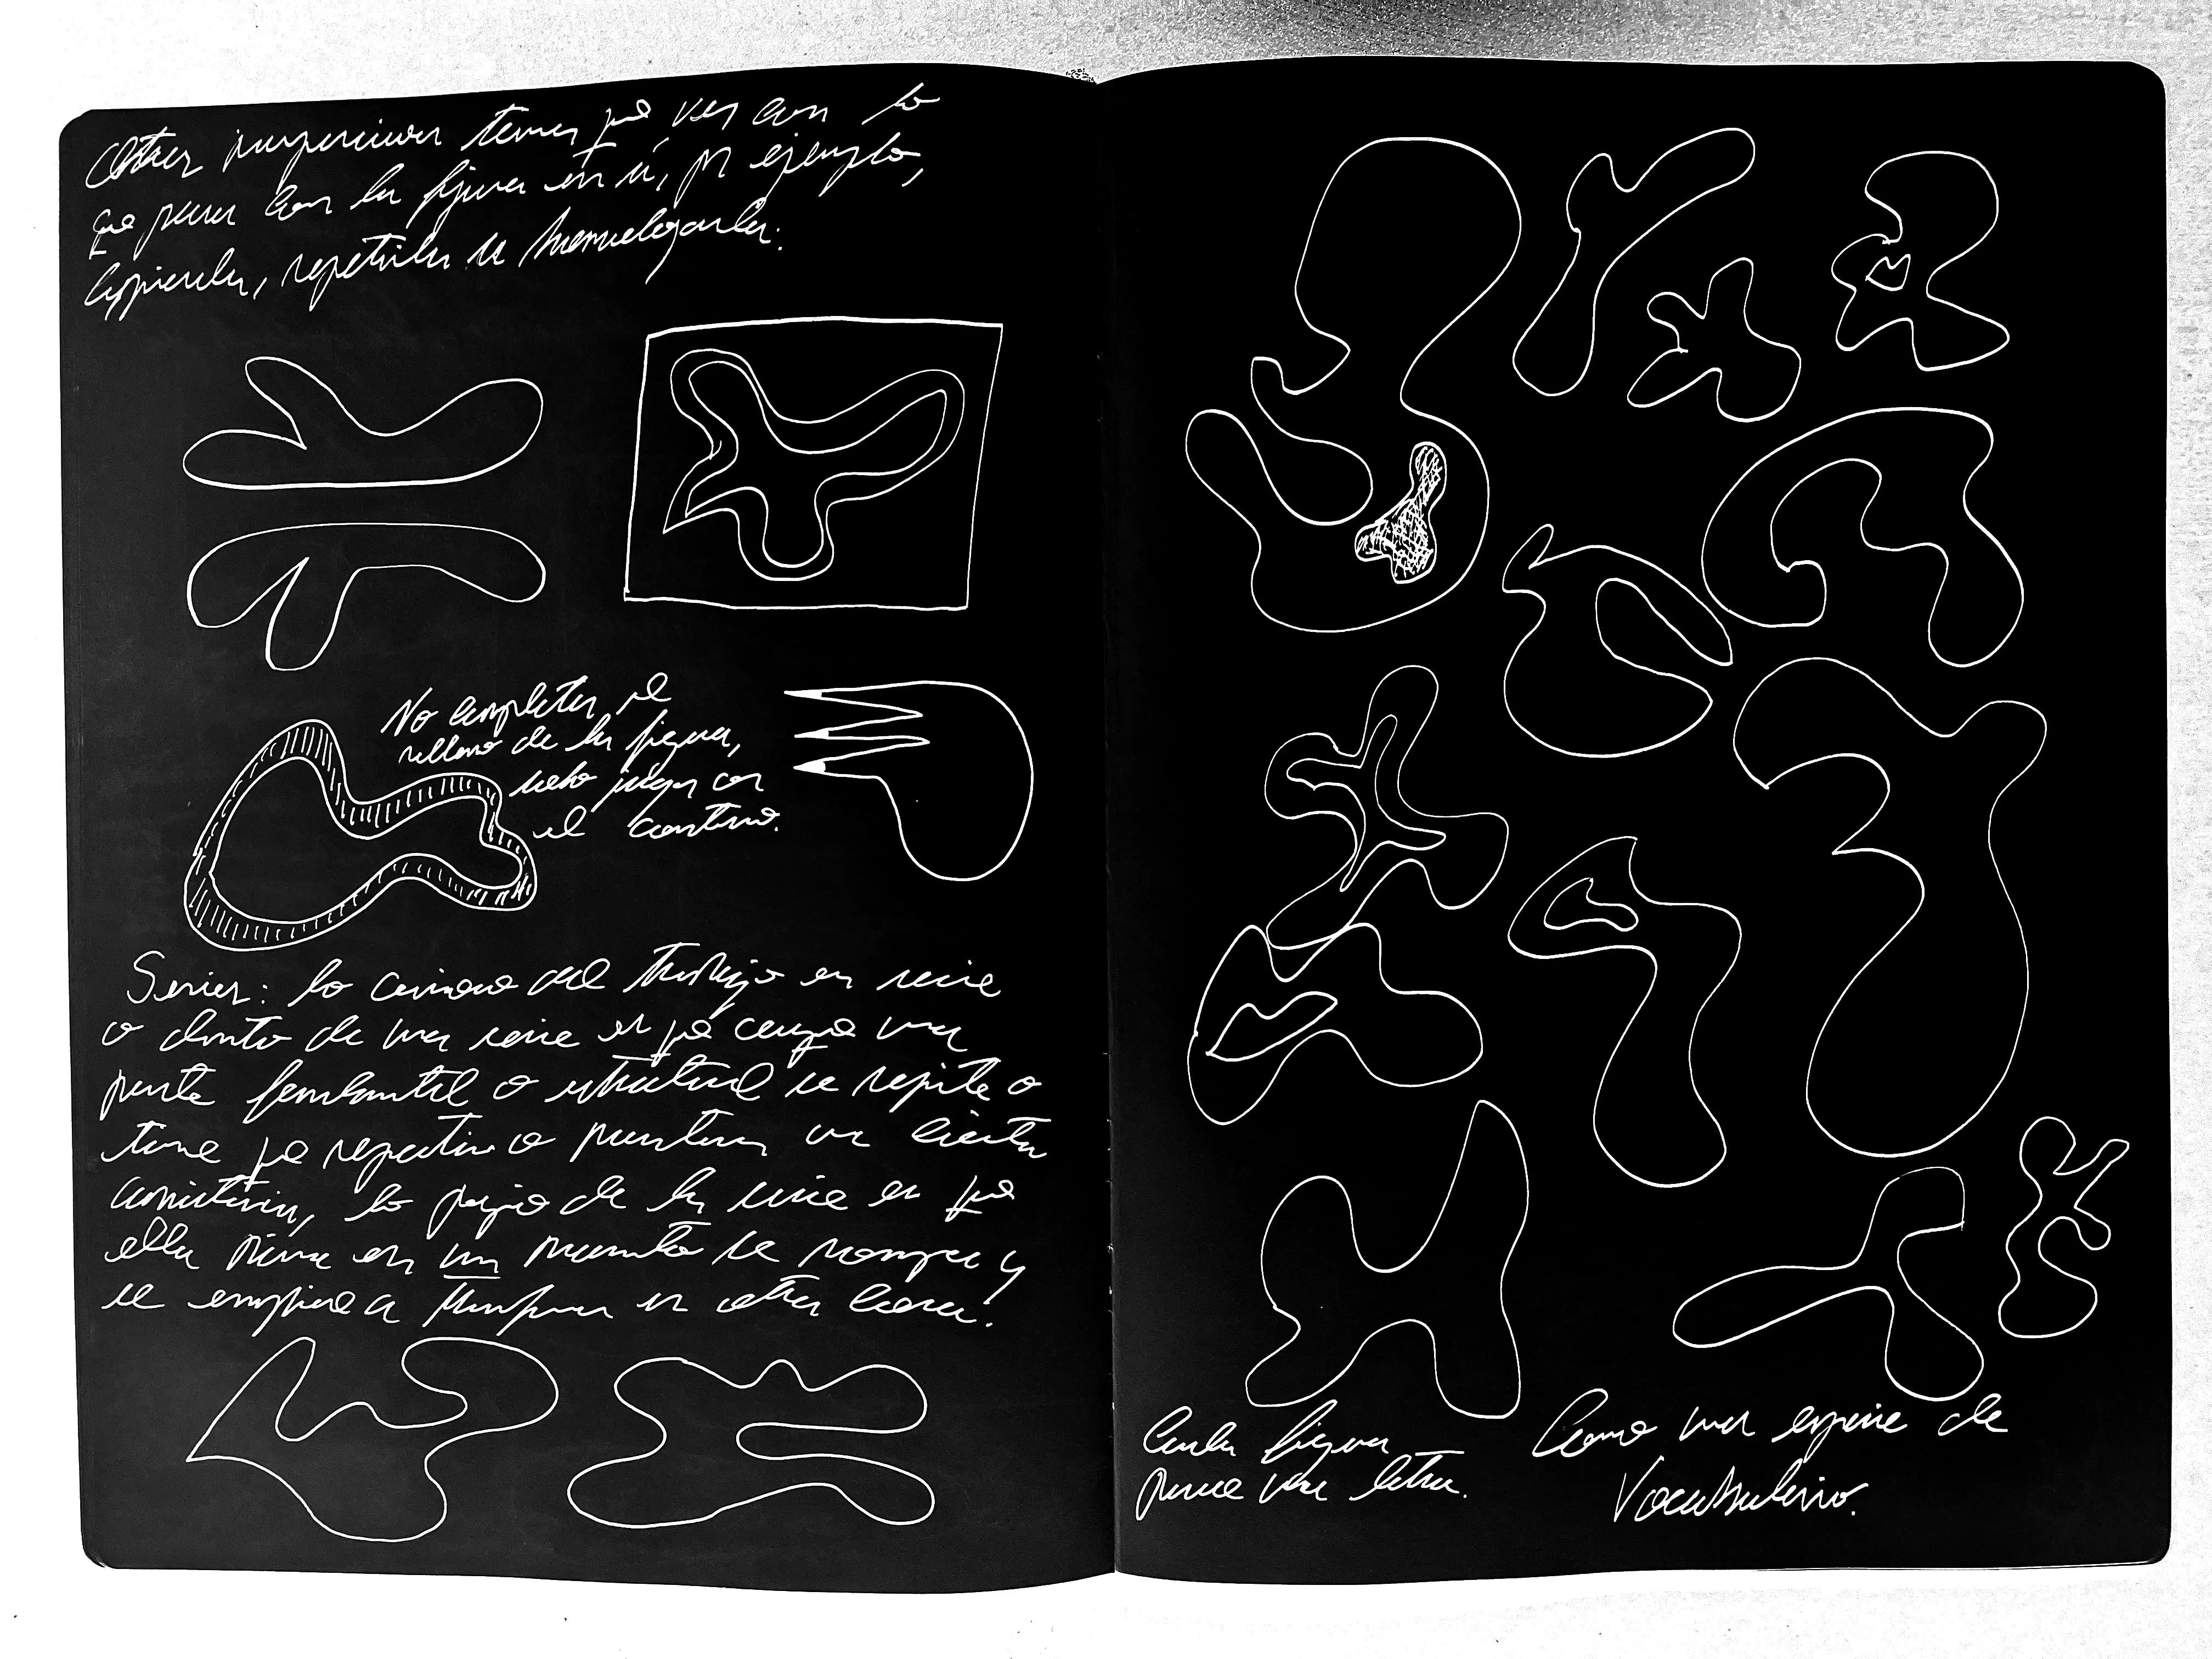 Otras impresiones tienen que ver con lo
que pasa con la figura en sí, por ejemplo,
copiarla, repetirla u homologarla.
No completar el
relleno de la figura,
sino jugar con
el contorno.
Series: lo curioso del trabajo en serie
o dentro de una serie es que aunque una
parte fundamental o estructural se repite o
tiene que repetirse o mantener una cierta
consistencia, lo propio de la serie es que
ella misma en un momento se rompe y
se empieza a transformar en otra cosa.
Cada figura
parece una letra.
Como una especie de
Vocabulario.